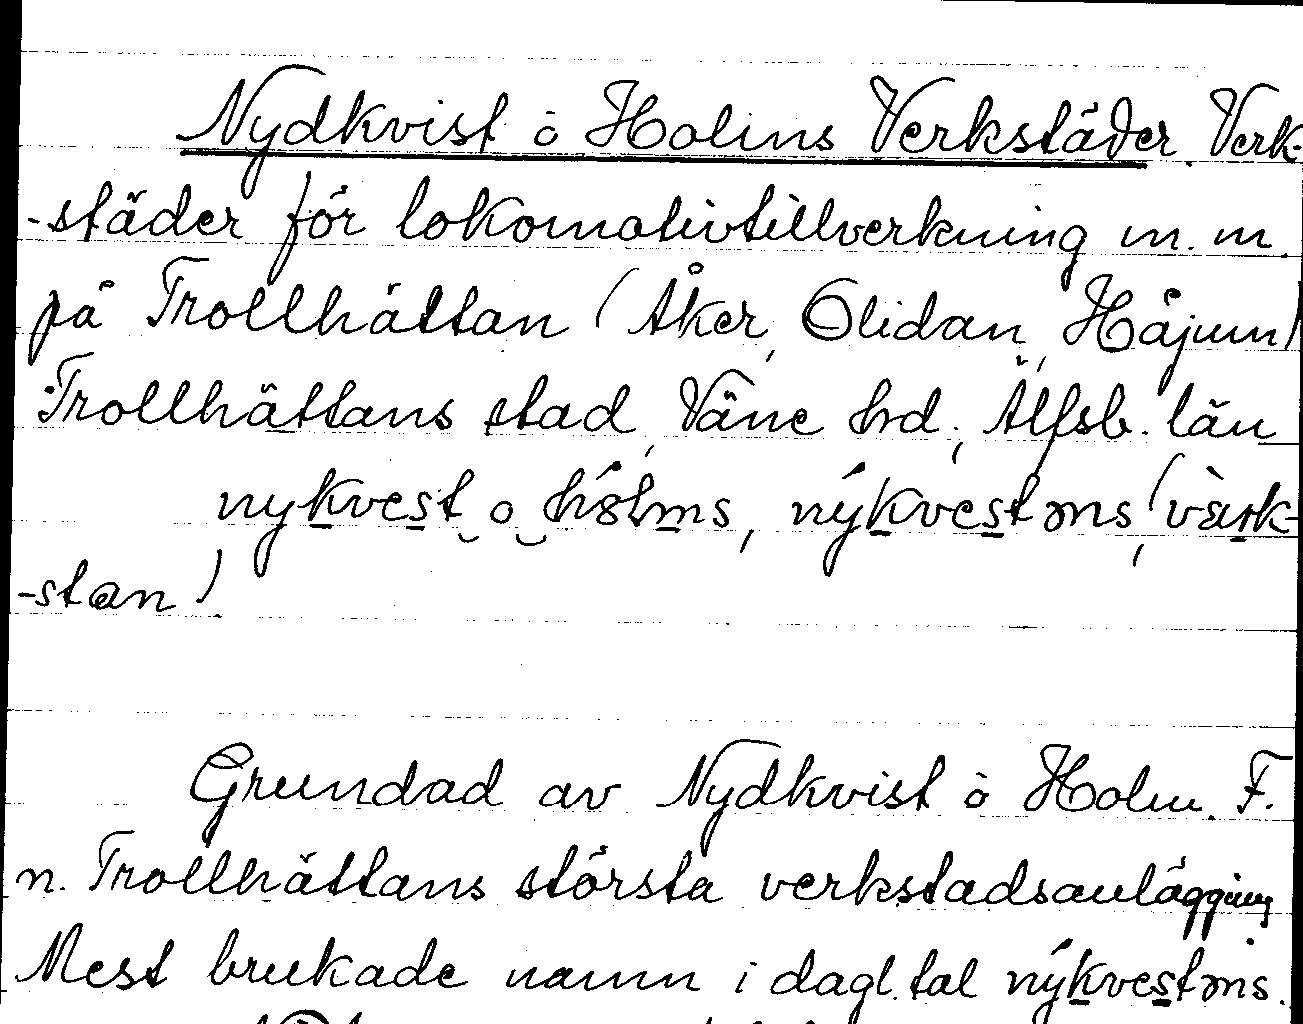 Nydkvist ö Holms Verkstäder. Verk-
-städer för lokomotivtillverkning m. m.
på Trollhättan (Åker, Olidan, Håjum)
Trollhättans stad, Väne hrd, Älfsb. län
nykvest o hólms, nýkvestəns, (vàrk-
-stan).
Grundad av Nydkvist ö Holm. F.
n. Trollhättans största verkstadsanläggning
Mest brukade namn i dagl. tal nýkvestəns.